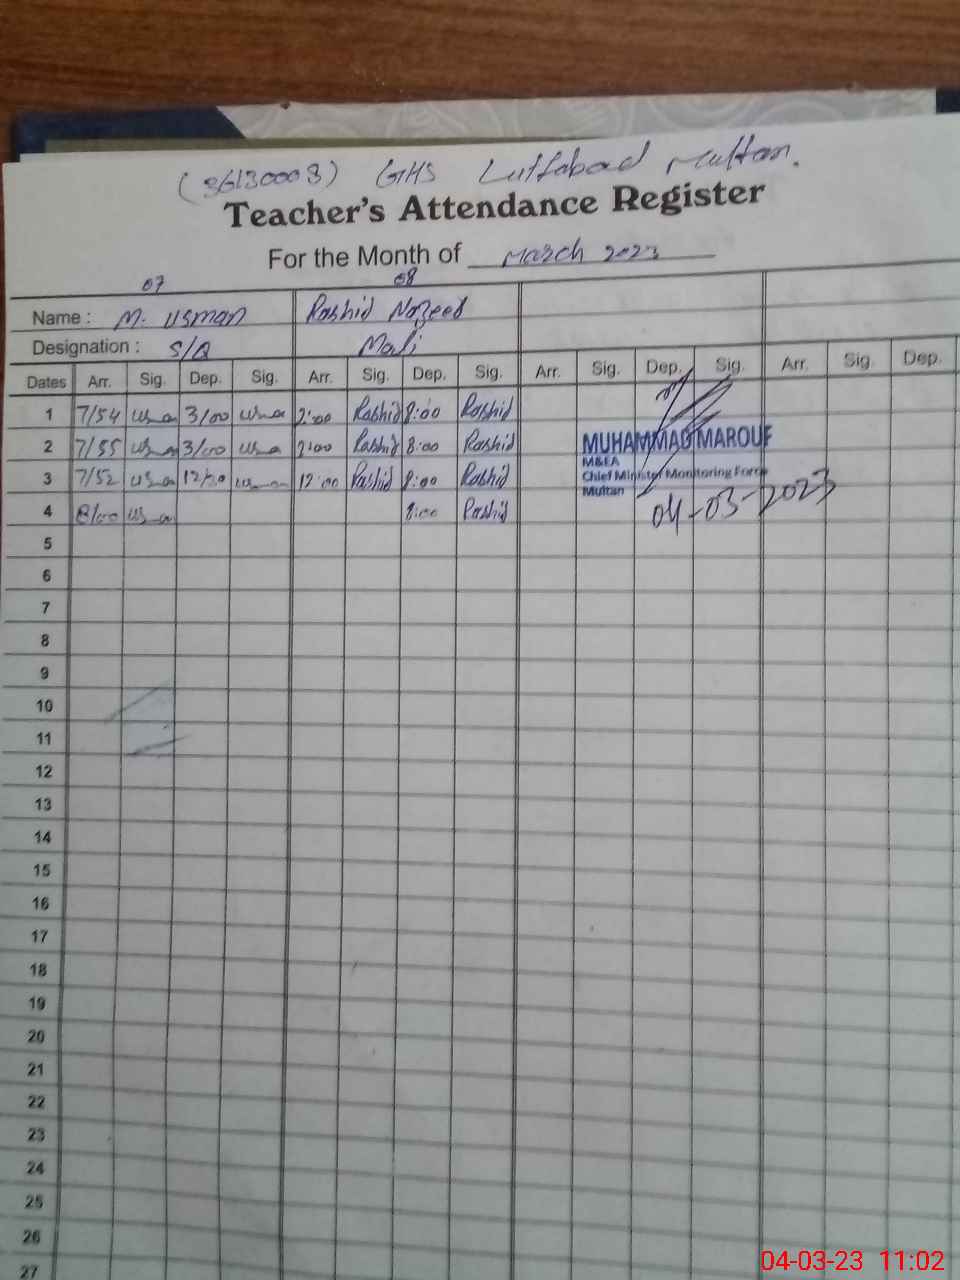 (36130003) GHS Lutfabad Multan.
Teacher's Attendance Register
For the Month of March 2023
07 08
Name : M. Usman Rashid Nazeed
Designation : S/Q Mali
Dates Arr. Sig. Dep. Sig. Arr. Sig. Dep. Sig. Arr. Sig. Dep. Sig. Arr. Sig. Dep.
1 7/54 3/00 2:00 Rashid 8:00 Rashid
2 7/55 3/00 2:00 Rashid 8:00 Rashid
3 7/52 12/30 12:00 Rashid 8:00 Rashid
4 8/00 8:00 Rashid
MUHAMMAD MAROUF
M&EA
Chief Minister Monitoring Force
Multan
04-03-2023
5
6
7
8
9
10
11
12
13
14
15
16
17
18
19
20
21
22
23
24
25
26
27
04-03-23 11:02